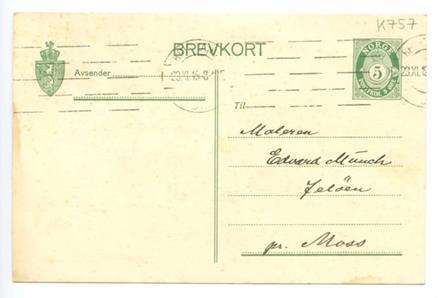 K757
BREVKORT
NORGE
5
Avsender
23 XI 15-8
23 XI. 15
Til
Maleren
Edvard Munch
Jeløen
pr. Moss